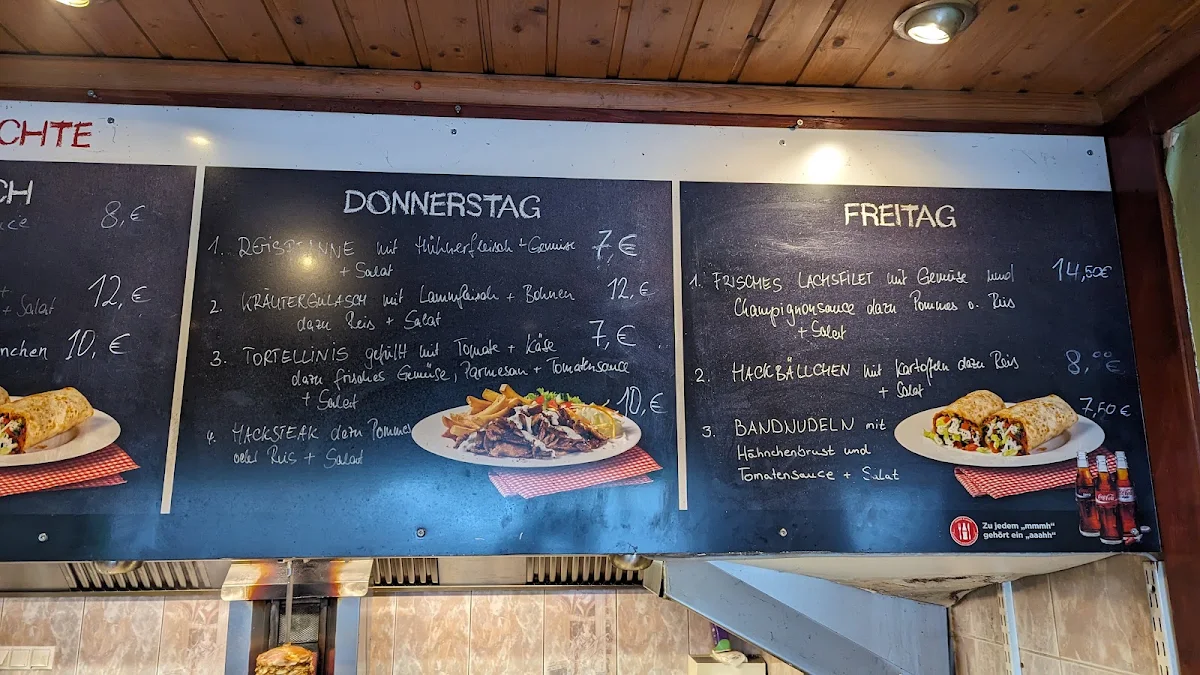 CHTE
CH
8,€
12,€
+ Salat
nchen 10,€
DONNERSTAG
1. REISPFANNE mit Hühnerfleisch + Gemüse 7,€
+ Salat
2. KRÄUTERGULASCH mit Lammfleisch + Bohnen 12,€
dazu Reis + Salat
3. TORTELLINIS gefüllt mit Tomate + Käse 7,€
dazu frisches Gemüse, Parmesan + Tomatensauce
+ Salat 10,€
4. HACKSTEAK dazu Pommes
oder Reis + Salat
FREITAG
1. FRISCHES LACHSFILET mit Gemüse und 14,50€
Champignonsauce dazu Pommes o. Reis
+ Salat
2. HACKBÄLLCHEN mit Kartoffeln dazu Reis 8,00€
+ Salat
7,50€
3. BANDNUDELN mit
Hähnchenbrust und
Tomatensauce + Salat
Zu jedem „mmmh"
gehört ein „aaahh"